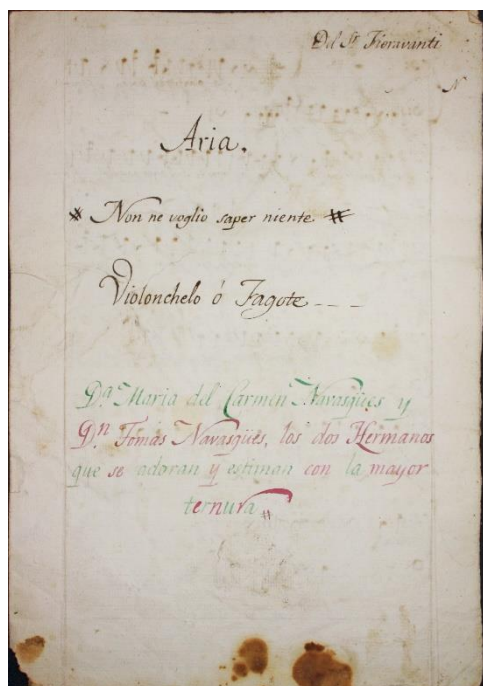 Del Sr. Fioravanti
Aria.
Non ne voglio saper niente
Violonchelo ó Fagote - - -
Dª. Maria del Carmen Navasgües y
Dn. Tomas Navasgües, los dos Hermanos
que se adoran y estiman con la mayor
ternura